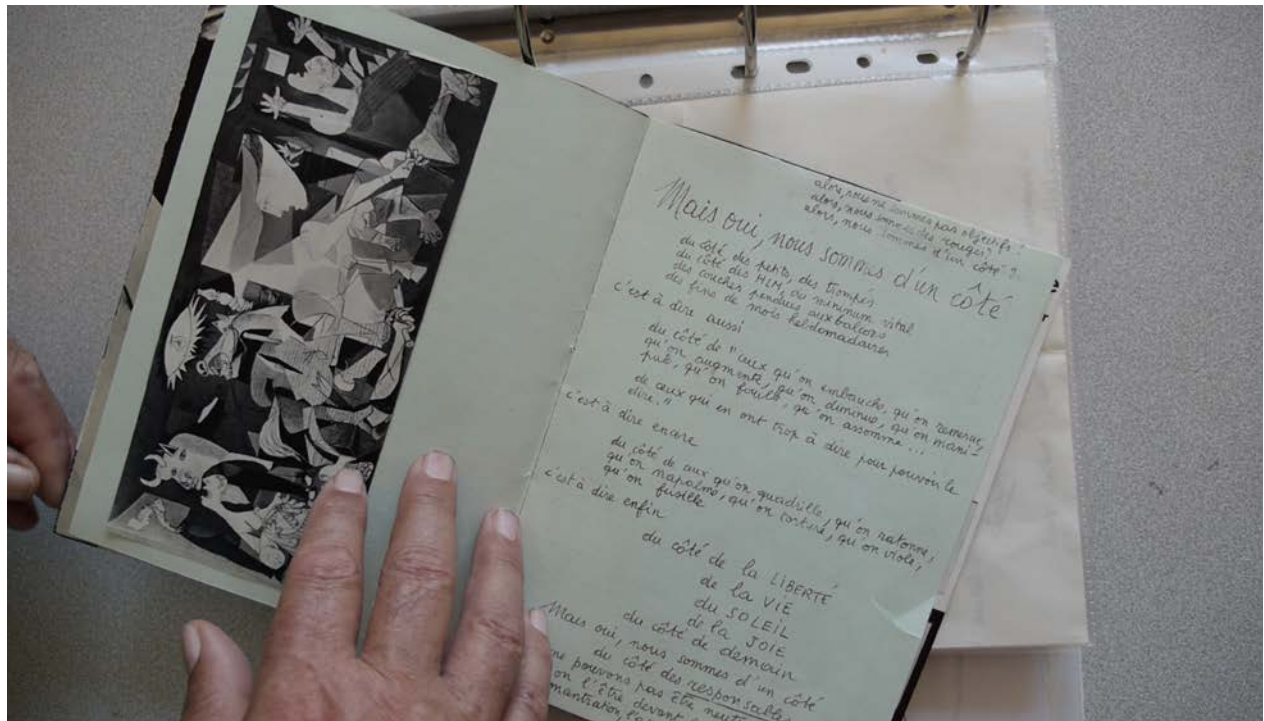 alors, nous ne sommes pas objectifs ?
alors, nous sommes des rouges ?
alors, nous sommes d'un côté ?
Mais oui, nous sommes d'un côté
du côté des petits, des trompés
du côté des HLM, du minimum vital
des couches pendues aux balcons
des fins de mois hebdomadaires
c'est à dire aussi
du côté de "ceux qu'on embauche, qu'on remercie,
qu'on augmente, qu'on diminue, qu'on mani-
pule, qu'on fouille, qu'on assomme...
de ceux qui en ont trop à dire pour pouvoir le
dire."
c'est à dire encore
du côté de ceux qu'on quadrille, qu'on ratonne,
qu'on napalme, qu'on torture, qu'on viole,
qu'on fusille
c'est à dire enfin
du côté de la LIBERTÉ
de la VIE
du SOLEIL
de la JOIE
du côté de demain
Mais oui, nous sommes d'un côté
du côté des responsables
ne pouvons pas être
l'être devant